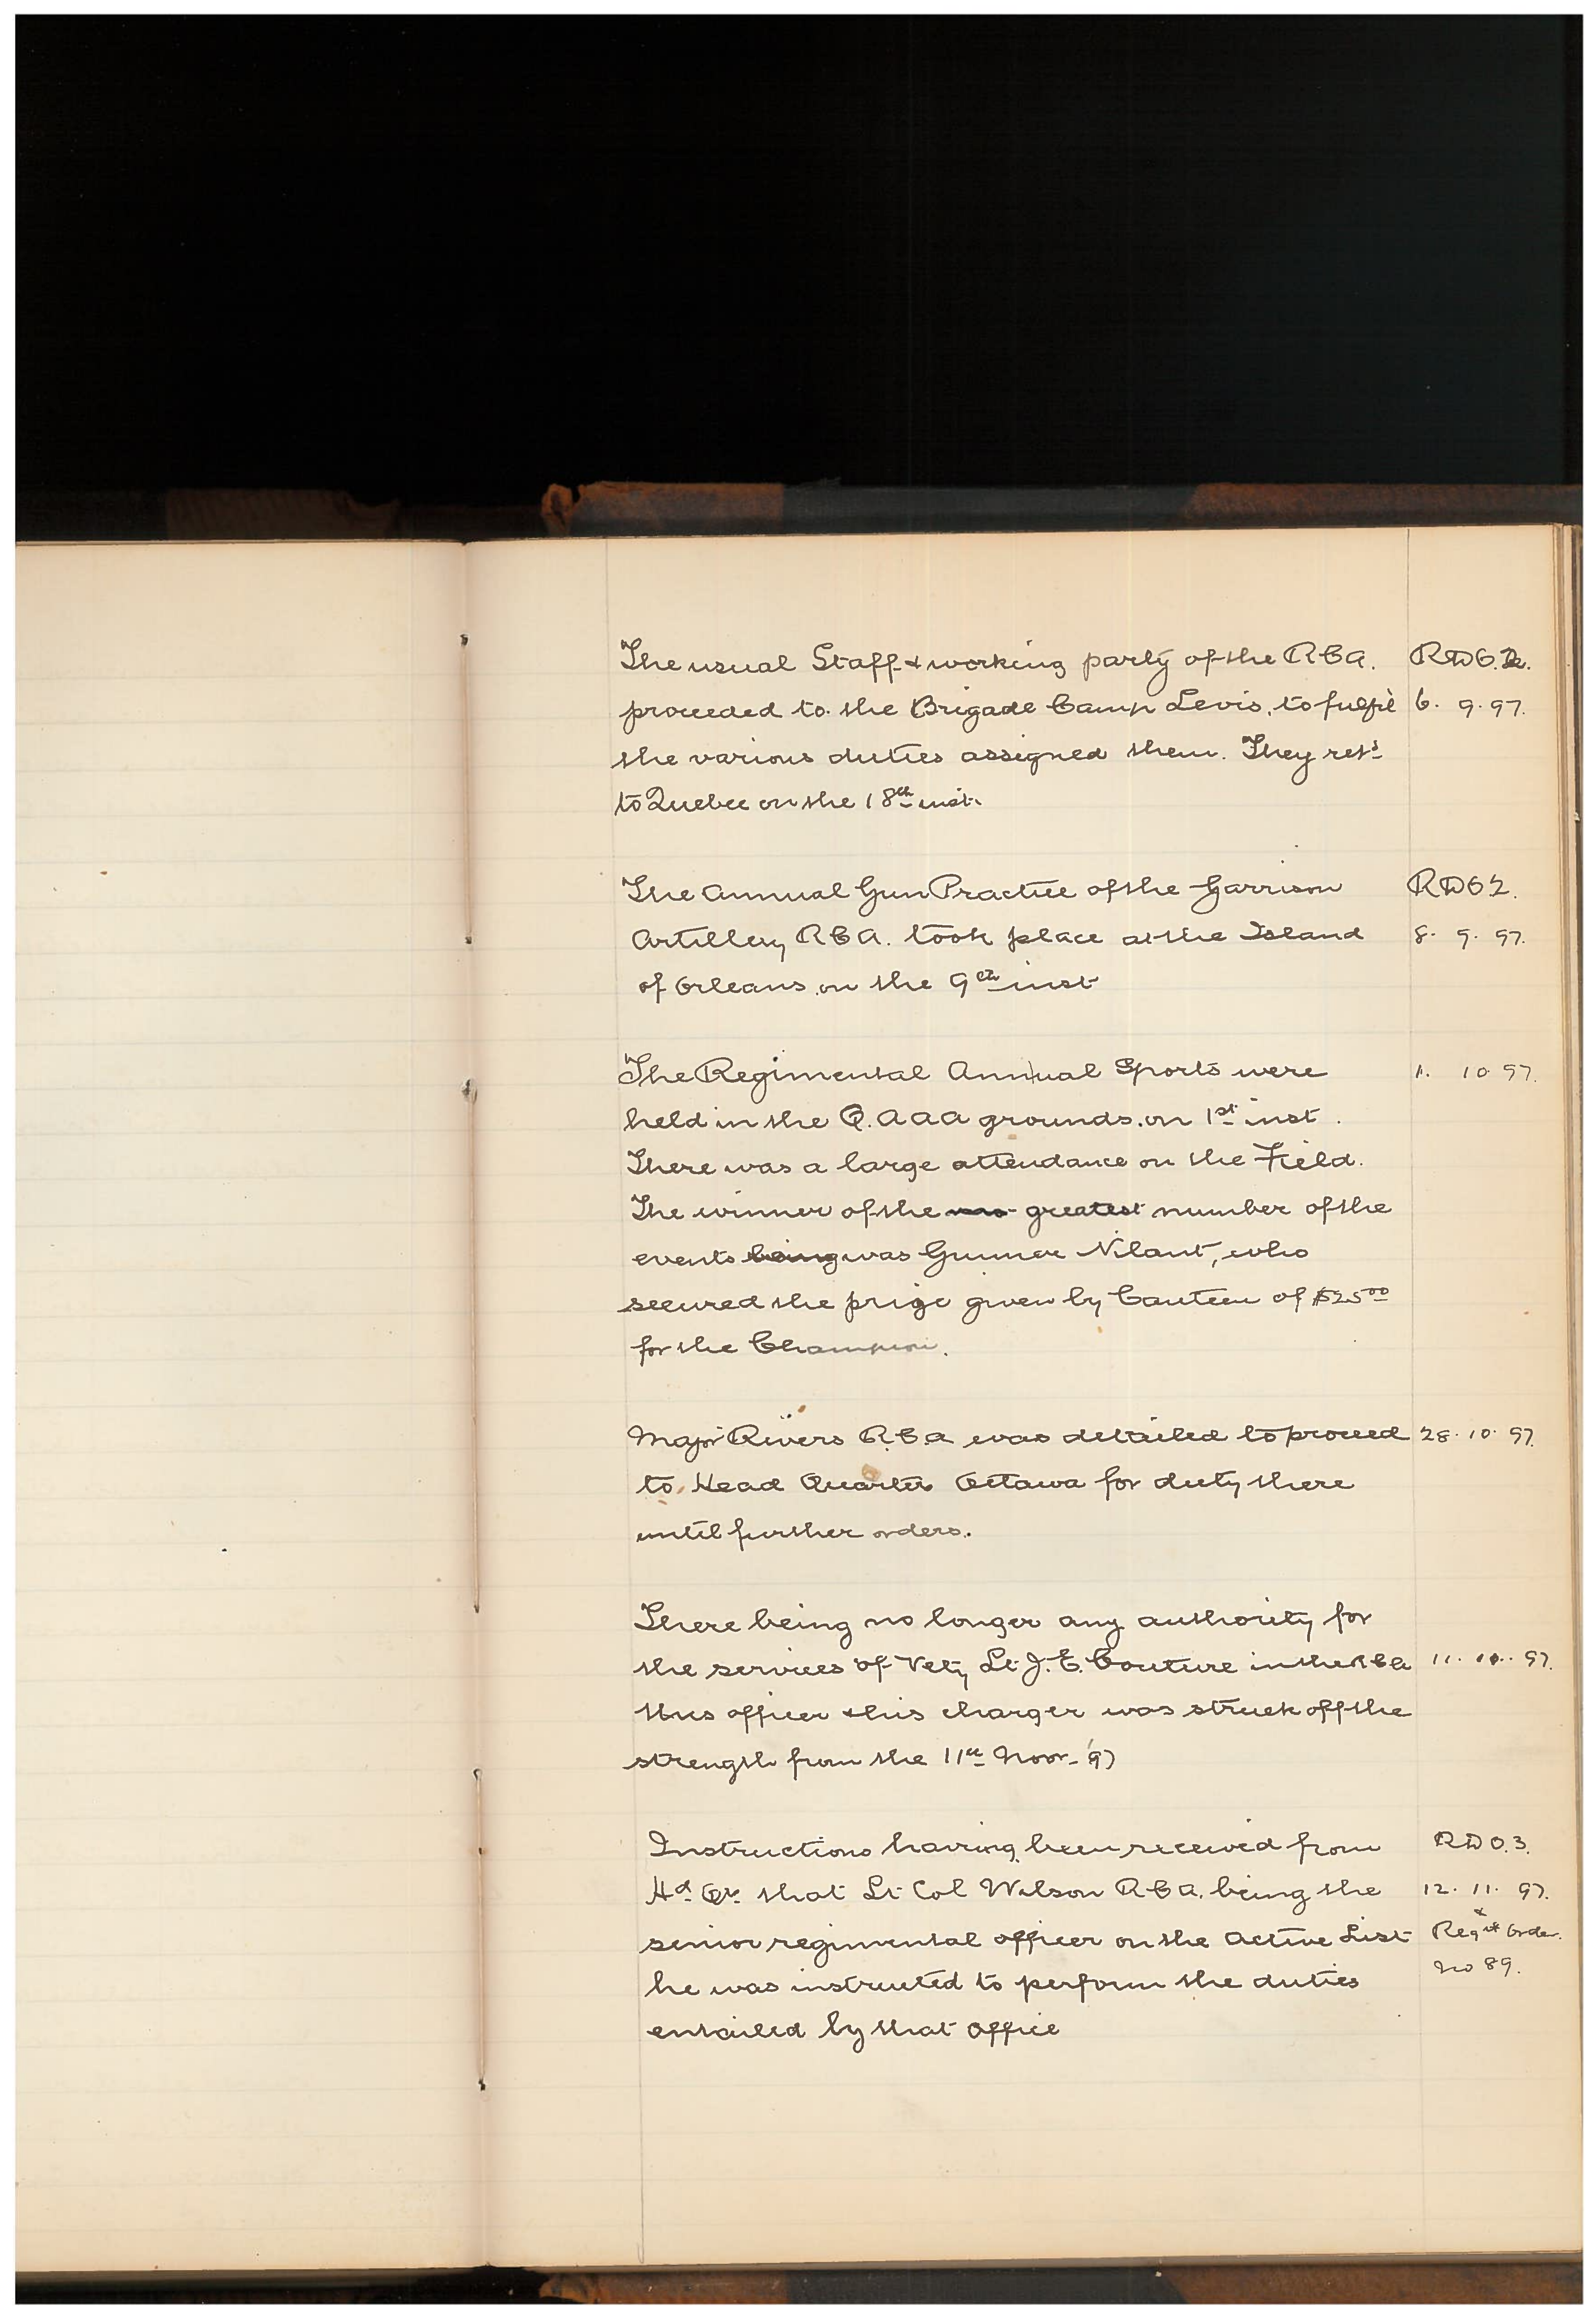 The usual Staff & working party of the RCA. RDO.2.
proceeded to the Brigade Camp Levis, to fulfil 6. 9. 97.
the various duties assigned them. They retd
to Quebec on the 18th inst.
The Annual Gun Practice of the Garrison RDO 2.
Artillery RCA. took place at the Island 8. 9. 97.
of Orleans on the 9th inst
The Regimental Annual Sports were 1. 10 97.
held in the Q.AAA grounds. on 1st inst.
There was a large attendance on the Field.
The winner of the greatest number of the
events being was Gunner Nilant, who
secured the prize given by Canteen of $25 00
for the Champion.
Major Rivers RCA was detailed to proceed 28. 10. 97.
to Head Quarters Ottawa for duty there
until further orders.
There being no longer any authority for
the services of Vety Lt J. E. Couture in the RCA 11. 97.
this officer & his charger was struck off the
strength from the 11th Novr. 97
Instructions having been received from RDO.3.
Hd Qrs that Lt Col Wilson RCA. being the 12. 11. 97.
senior regimental officer on the Active List Regtl Order.
he was instructed to perform the duties No 89.
entailed by that office